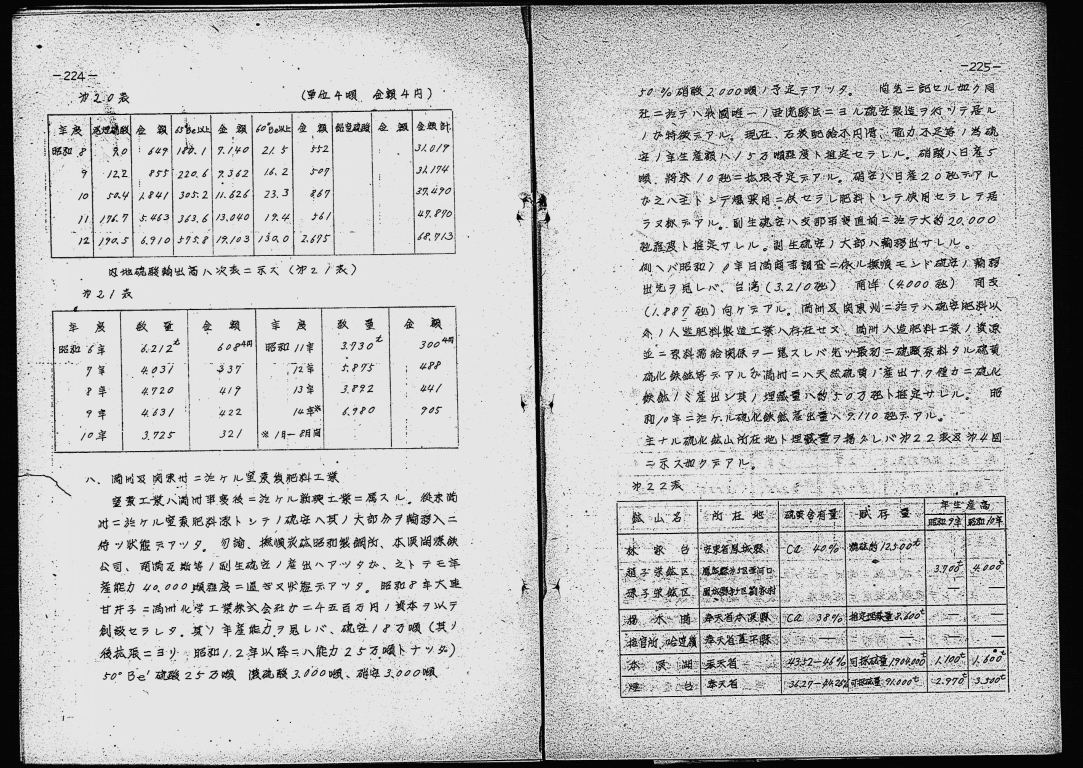 －224－
第20表
(単位4噸 金額4円)
年度 金額 65°Be以上 金額 60°Be以上 金額 金額 金額計
昭和 8 9.0 649 7.140 21.5 552 31.019
9 12.2 855 220.6 9.362 16.2 507 31.174
10 50.4 1.841 305.2 11.626 23.3 867 37.490
11 176.7 5.463 363.6 13.040 19.4 561 47.870
12 190.5 6.910 575.8 19.103 130.0 2.675 68.713
内地硫酸輸出高ハ次表ニ示ス（第21表）
第21表
年度 数量 金額 年度 数量 金額
昭和 6年 6.212t 608千円 昭和11年 3.730t 300千円
7年 4.031 337 12年 5.875 488
8年 4.720 419 13年 3.892 441
9年 4.631 422 14年※ 6.980 905
10年 3.725 321 ※1月－8月間
ハ. 満州及関東州ニ於ケル窒素質肥料工業
窒素工業ハ満州事変後ニ於ケル新興工業ニ属スル。従来満
州ニ於ケル窒素肥料源トシテノ硫安ハ其ノ大部分ヲ輸移入ニ
待ツ状態デアツタ。勿論、撫順炭砿昭和製鋼所、本渓湖煤鉄
公司、 等ノ副生硫安ノ産出ハアツタガ、之トテモ年
産能力40.000噸程度ニ過ギヌ状態デアツタ。昭和8年大連
甘井子ニ満州化学工業株式会社ガ二千五百万円ノ資本ヲ以テ
創設セラレタ。其ノ年産能力ヲ見レバ、硫安18万噸（其ノ
後拡張ニヨリ 昭和12年以降ニハ能力25万噸トナツタ）
50°Be′硫酸25万噸 濃硫酸3.000噸、硝安3.000噸
－225－
50%硝酸2000噸ノ予定デアツタ。 尚先ニ記セル如ク同
社ニ於テハ我国唯一ノ亜硫酸法ニヨル硫安製造ヲ行ツテ居ル
ノガ特徴デアル。現在、石炭配給不円滑、電力不足等ノ為硫
安ノ年生産額ハ15万噸程度ト推定セラレル。硝酸ハ日産5
噸、将来10瓲ニ拡張予定デアル。硝安ハ日産20瓲デアル
ガ之ハ主トシテ爆薬用ニ供セラレ肥料トシテ使用セラレテ居
ラヌ様デアル。副生硫安ハ支那事変直前ニ於テ大約20.000
瓲程度ト推定サレル。副生硫安ノ大部ハ輸移出サレル。
例ヘバ昭和10年日満商事調査ニ依ル撫順モンド硫安ノ輸移
出先ヲ見レバ、台湾（3.210瓲） 南洋（4.000瓲）
（1.887瓲）向ケデアル。満州及関東州ニ於テハ硫安肥料以
外ノ人造肥料製造工業ハ存在セズ、満州人造肥料工業ノ資源
並ニ原料需給関係ヲ一覧スレバ先ヅ最初ニ硫酸原料タル硫黄
硫化鉄鉱等デアルガ満州ニハ天然硫黄ノ産出ナク僅カニ硫化
鉄鉱ノミ産出シ其ノ埋蔵量ハ約50万瓲ト推定サレル。 昭
和10年ニ於ケル硫化鉄鉱産出量ハ9.110瓲デアル。
主ナル硫化鉱山所在地ト埋蔵量ヲ掲グレバ第22表及第4図
ニ示ス如クデアル。
第22表
鉱山名 所在地 硫黄含有量 賦存量 年生産高
昭和9年 昭和10年
林家台 安東省鳳城縣 Ca 40% 12.500t － －
趙子溝鉱区 3.700t 4.000t
孫子溝鉱区 － －
楊木 奉天省本渓縣 Ca 38% 推定埋蔵量8.600t － －
奉天省 － － － －
本渓湖 奉天省 43.32－46% 可採鉱量 1.100t 1.600t
煙台 奉天省 可採鉱量 91.000t 2.970t 3.500t